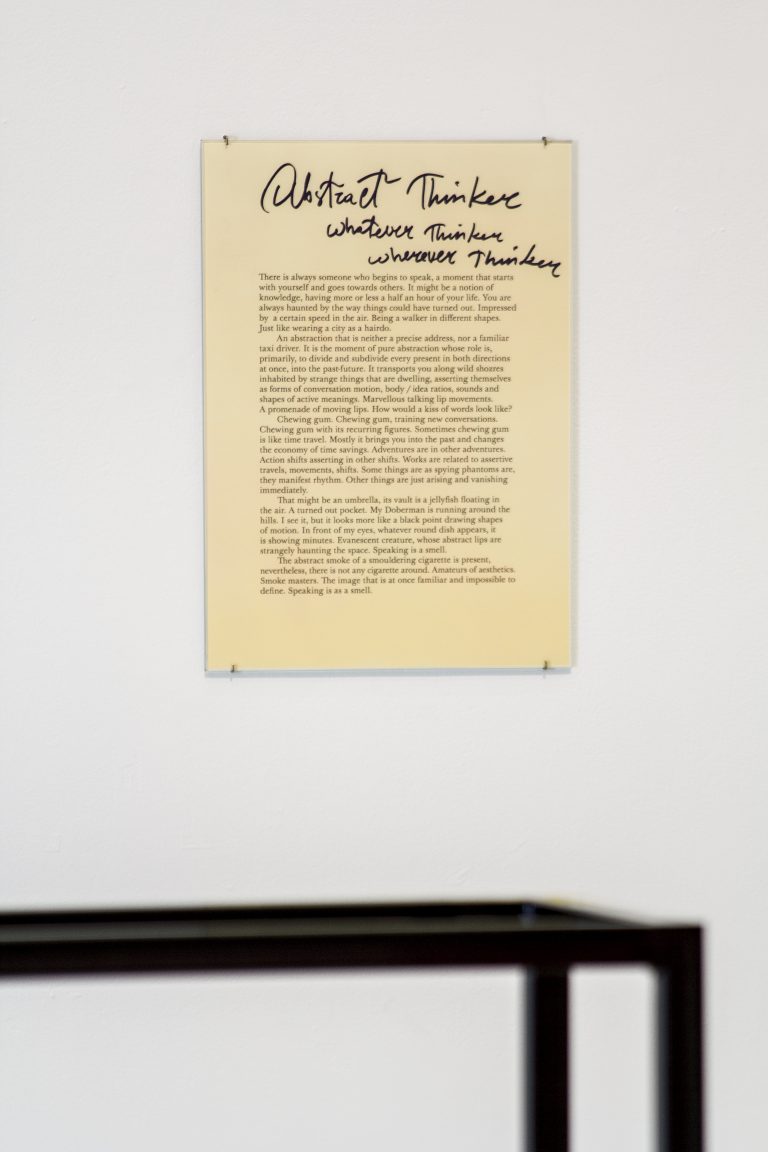 Abstract Thinker
whatever Thinker
wherever Thinker
There is always someone who begins to speak, a moment that starts
with yourself and goes towards others. It might be a notion of
knowledge, having more or less a half an hour of your life. You are
always haunted by the way things could have turned out. Impressed
by a certain speed in the air. Being a walker in different shapes.
Just like wearing a city as a hairdo.
An abstraction that is neither a precise address, nor a familiar
taxi driver. It is the moment of pure abstraction whose role is,
primarily, to divide and subdivide every present in both directions
at once, into the past-future. It transports you along wild shozres
inhabited by strange things that are dwelling, asserting themselves
as forms of conversation motion, body / idea ratios, sounds and
shapes of active meanings. Marvellous talking lip movements.
A promenade of moving lips. How would a kiss of words look like?
Chewing gum. Chewing gum, training new conversations.
Chewing gum with its recurring figures. Sometimes chewing gum
is like time travel. Mostly it brings you into the past and changes
the economy of time savings. Adventures are in other adventures.
Action shifts asserting in other shifts. Works are related to assertive
travels, movements, shifts. Some things are as spying phantoms are,
they manifest rhythm. Other things are just arising and vanishing
immediately.
That might be an umbrella, its vault is a jellyfish floating in
the air. A turned out pocket. My Doberman is running around the
hills. I see it, but it looks more like a black point drawing shapes
of motion. In front of my eyes, whatever round dish appears, it
is showing minutes. Evanescent creature, whose abstract lips are
strangely haunting the space. Speaking is a smell.
The abstract smoke of a smouldering cigarette is present,
nevertheless, there is not any cigarette around. Amateurs of aesthetics.
Smoke masters. The image that is at once familiar and impossible to
define. Speaking is as a smell.